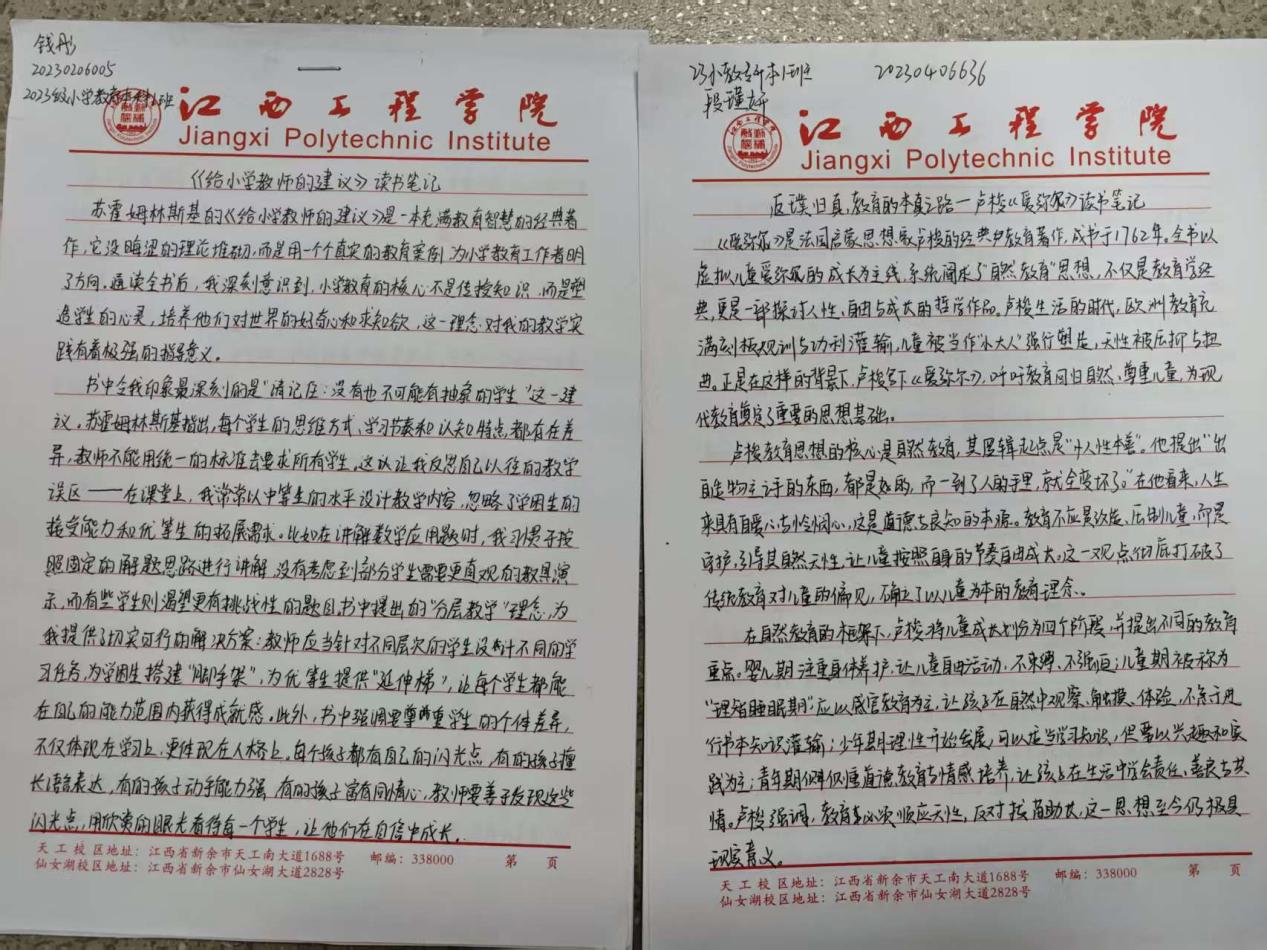 钱彤
20230206005
2023级小学教育本科1班
江西工程学院
Jiangxi Polytechnic Institute
《给小学教师的建议》读书笔记
苏霍姆林斯基的《给小学教师的建议》是一本充满教育智慧的经典著
作,它没晦涩的理论堆砌,而是用一个个真实的教育案例,为小学教育工作者明
了方向。通读全书后,我深刻意识到,小学教育的核心不是传授知识,而是塑
造学生的心灵,培养他们对世界的好奇心和求知欲,这一理念对我的教学实
践有着极强的指导意义。
书中令我印象最深刻的是“请记住:没有也不可能有抽象的学生”这一建
议。苏霍姆林斯基指出,每个学生的思维方式、学习节奏和认知特点都有在差
异,教师不能用统一的标准去要求所有学生。这认让我反思自己以往的教学
误区——在课堂上,我常常以中等生的水平设计教学内容,忽略了学困生的
接受能力和优等生的拓展需求。比如在讲解数学应用题时,我习惯于按
照固定的解题思路进行讲解,没有考虑到部分学生需要更直观的教具演
示,而有些学生则渴望更有挑战性的题目。书中提出的“分层教学”理念,为
我提供了切实可行的解决方案:教师应当针对不同层次的学生设计不同的学
习任务,为学困生搭建“脚手架”,为优等生提供“延伸梯”,让每个学生都能
在自己的能力范围内获得成就感。此外,书中强调要尊重学生的个体差异,
不仅体现在学习上,更体现在人格上。每个孩子都有自己的闪光点,有的孩子擅
长语言表达,有的孩子动手能力强,有的孩子富有同情心,教师要善于发现这些
闪光点,用欣赏的眼光看待每一个学生,让他们在自信中成长。
天工校区地址:江西省新余市天工南大道1688号 邮编:338000 第 页
仙女湖校区地址:江西省新余市仙女湖大道2828号
23小教专本1班 20230406636
段瑾妍
江西工程学院
Jiangxi Polytechnic Institute
返璞归真,教育的本真之路—卢梭《爱弥尔》读书笔记
《爱弥尔》是法国启蒙思想家卢梭的经典教育著作,成书于1762年。全书以
虚拟儿童爱弥尔的成长为主线,系统阐述了“自然教育”思想,不仅是教育学经
典,更是一部探讨人性、自由与成长的哲学作品。卢梭生活的时代,欧洲教育充
满刻板规训与功利灌输,儿童被当作“小大人”强行塑造,天性被压抑与扭
曲。正是在这样的背景下,卢梭写下《爱弥尔》,呼吁教育回归自然、尊重儿童,为现
代教育奠定了重要的思想基础。
卢梭教育思想的核心是自然教育,其逻辑起点是“人性本善”。他提出“出
自造物主之手的东西,都是好的,而一到了人的手里,就全变坏了。”在他看来,人生
来具有自爱心与怜悯心,这是道德与良知的本源。教育不应是改造、压制儿童,而是
守护、引导其自然天性,让儿童按照自身的节奏自由成长。这一观点彻底打破了
传统教育对儿童的偏见,确立了以儿童为本的教育理念。
在自然教育的框架下,卢梭将儿童成长划分为四个阶段,并提出不同的教育
重点。婴儿期注重身体养护,让儿童自由活动,不束缚、不强迫;儿童期被称为
“理智睡眠期”应以感官教育为主,让孩子在自然中观察、触摸、体验,不急于进
行书本知识灌输;少年期理性开始发展,可以适当学习知识,但需以兴趣和实
践为主;青年期侧重道德教育与情感培养,让孩子在生活中学会责任、善良与共
情。卢梭强调,教育必须顺应天性,反对拔苗助长,这一思想至今仍极具
现实意义。
天工校区地址:江西省新余市天工南大道1688号 邮编:338000 第 页
仙女湖校区地址:江西省新余市仙女湖大道2828号